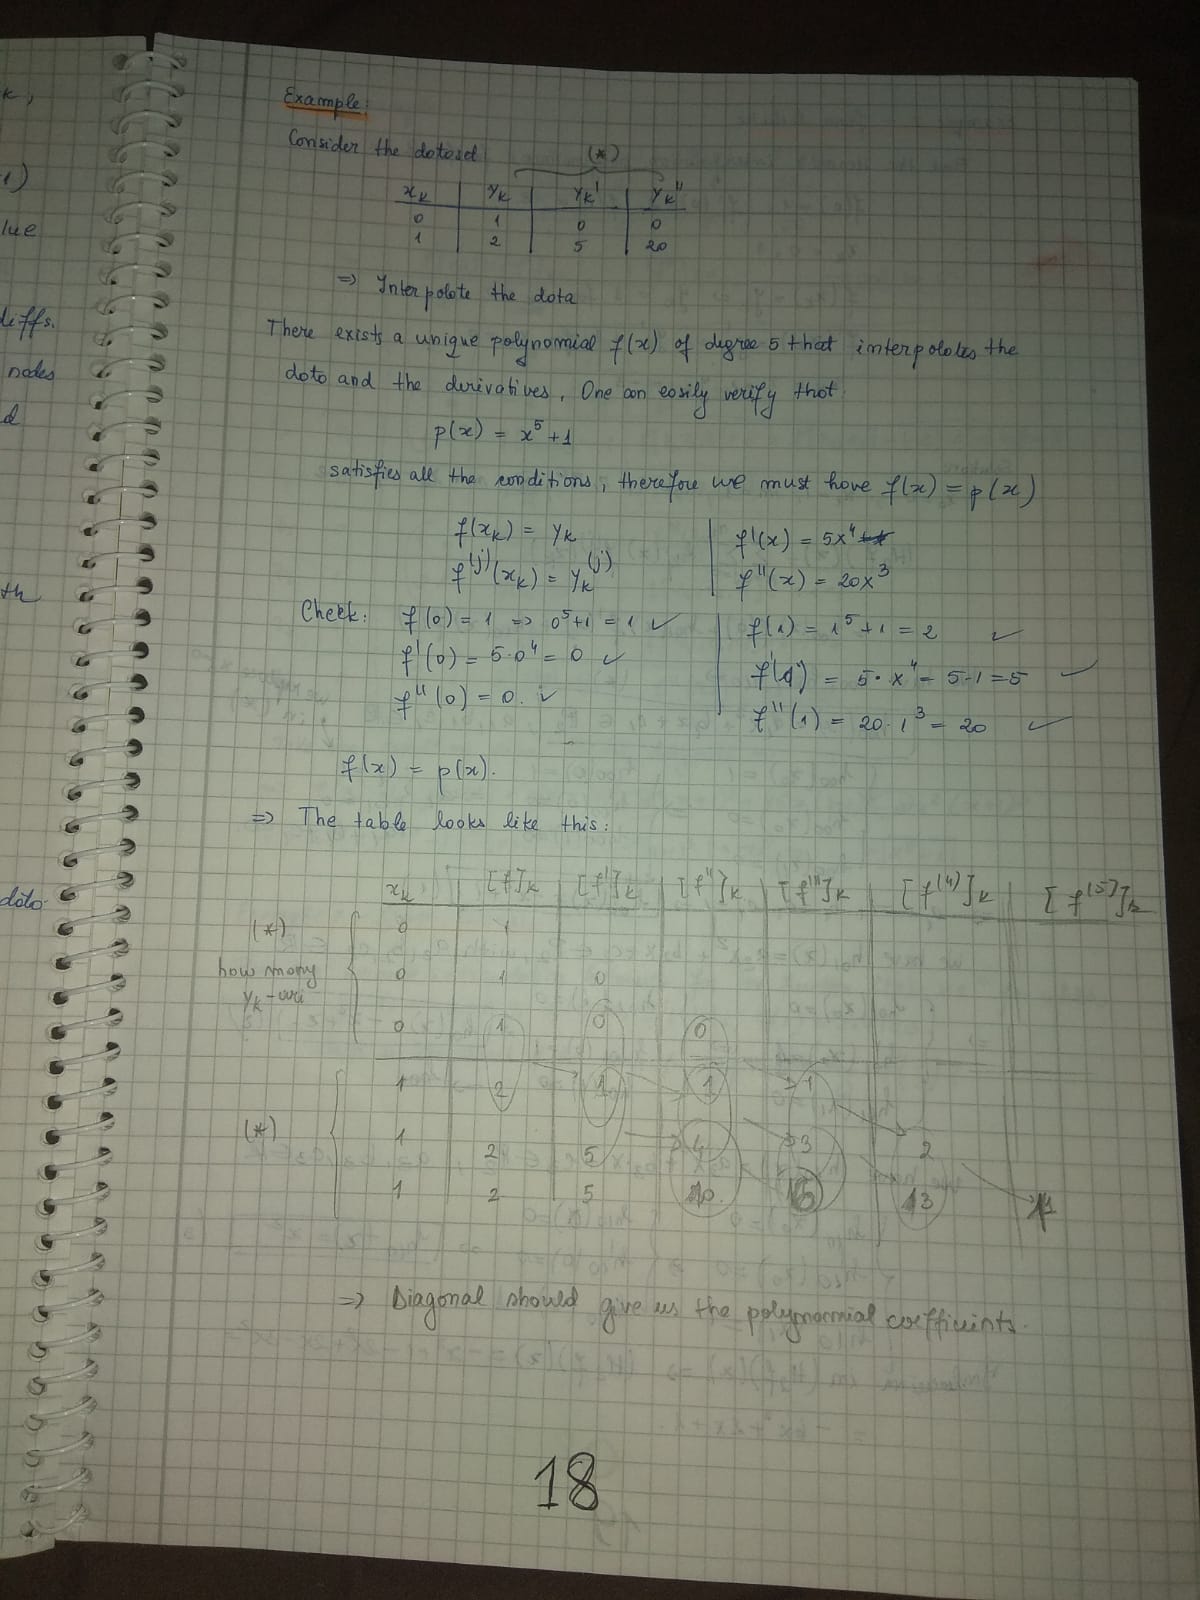 k,
1)
lue
diffs.
nodes
d
th
doto
Example:
Consider the dotosd (*)
xk | yk | yk' | yk"
0 | 1 | 0 | 0
1 | 2 | 5 | 20
=> Interpolote the dota
There exists a unique polynomial f(x) of degree 5 that interpolotes the
doto and the derivatives. One con eosily verify thot:
p(x) = x⁵ + 1
satisfies all the conditions, therefore we must hove f(x) = p(x)
f(xk) = yk | f'(x) = 5x⁴
f^(j)(xk) = yk^(j) | f"(x) = 20x³
Check: f(0) = 1 => 0⁵+1 = 1 ✓ | f(1) = 1⁵+1 = 2 ✓
f'(0) = 5·0⁴ = 0 ✓ | f'(1) = 5·x⁴ = 5·1 = 5 ✓
f"(0) = 0. ✓ | f"(1) = 20·1³ = 20 ✓
f(x) = p(x).
=> The table looks like this:
xk | [f]k | [f']k | [f"]k | [f''']k | [f^(4)]k | [f^(5)]k
(*) 0 | 1
how mony 0 | 1 | 0
yk-uri
0 | 1 | 0 | 0
1 | 2 | 1 | 1 | 1
(*) 1 | 2 | 5 | 4 | 3 | 2
1 | 2 | 5 | 10. | 6 | 3 | 1
=> Diagonal should give us the polynomial coefficients.
18